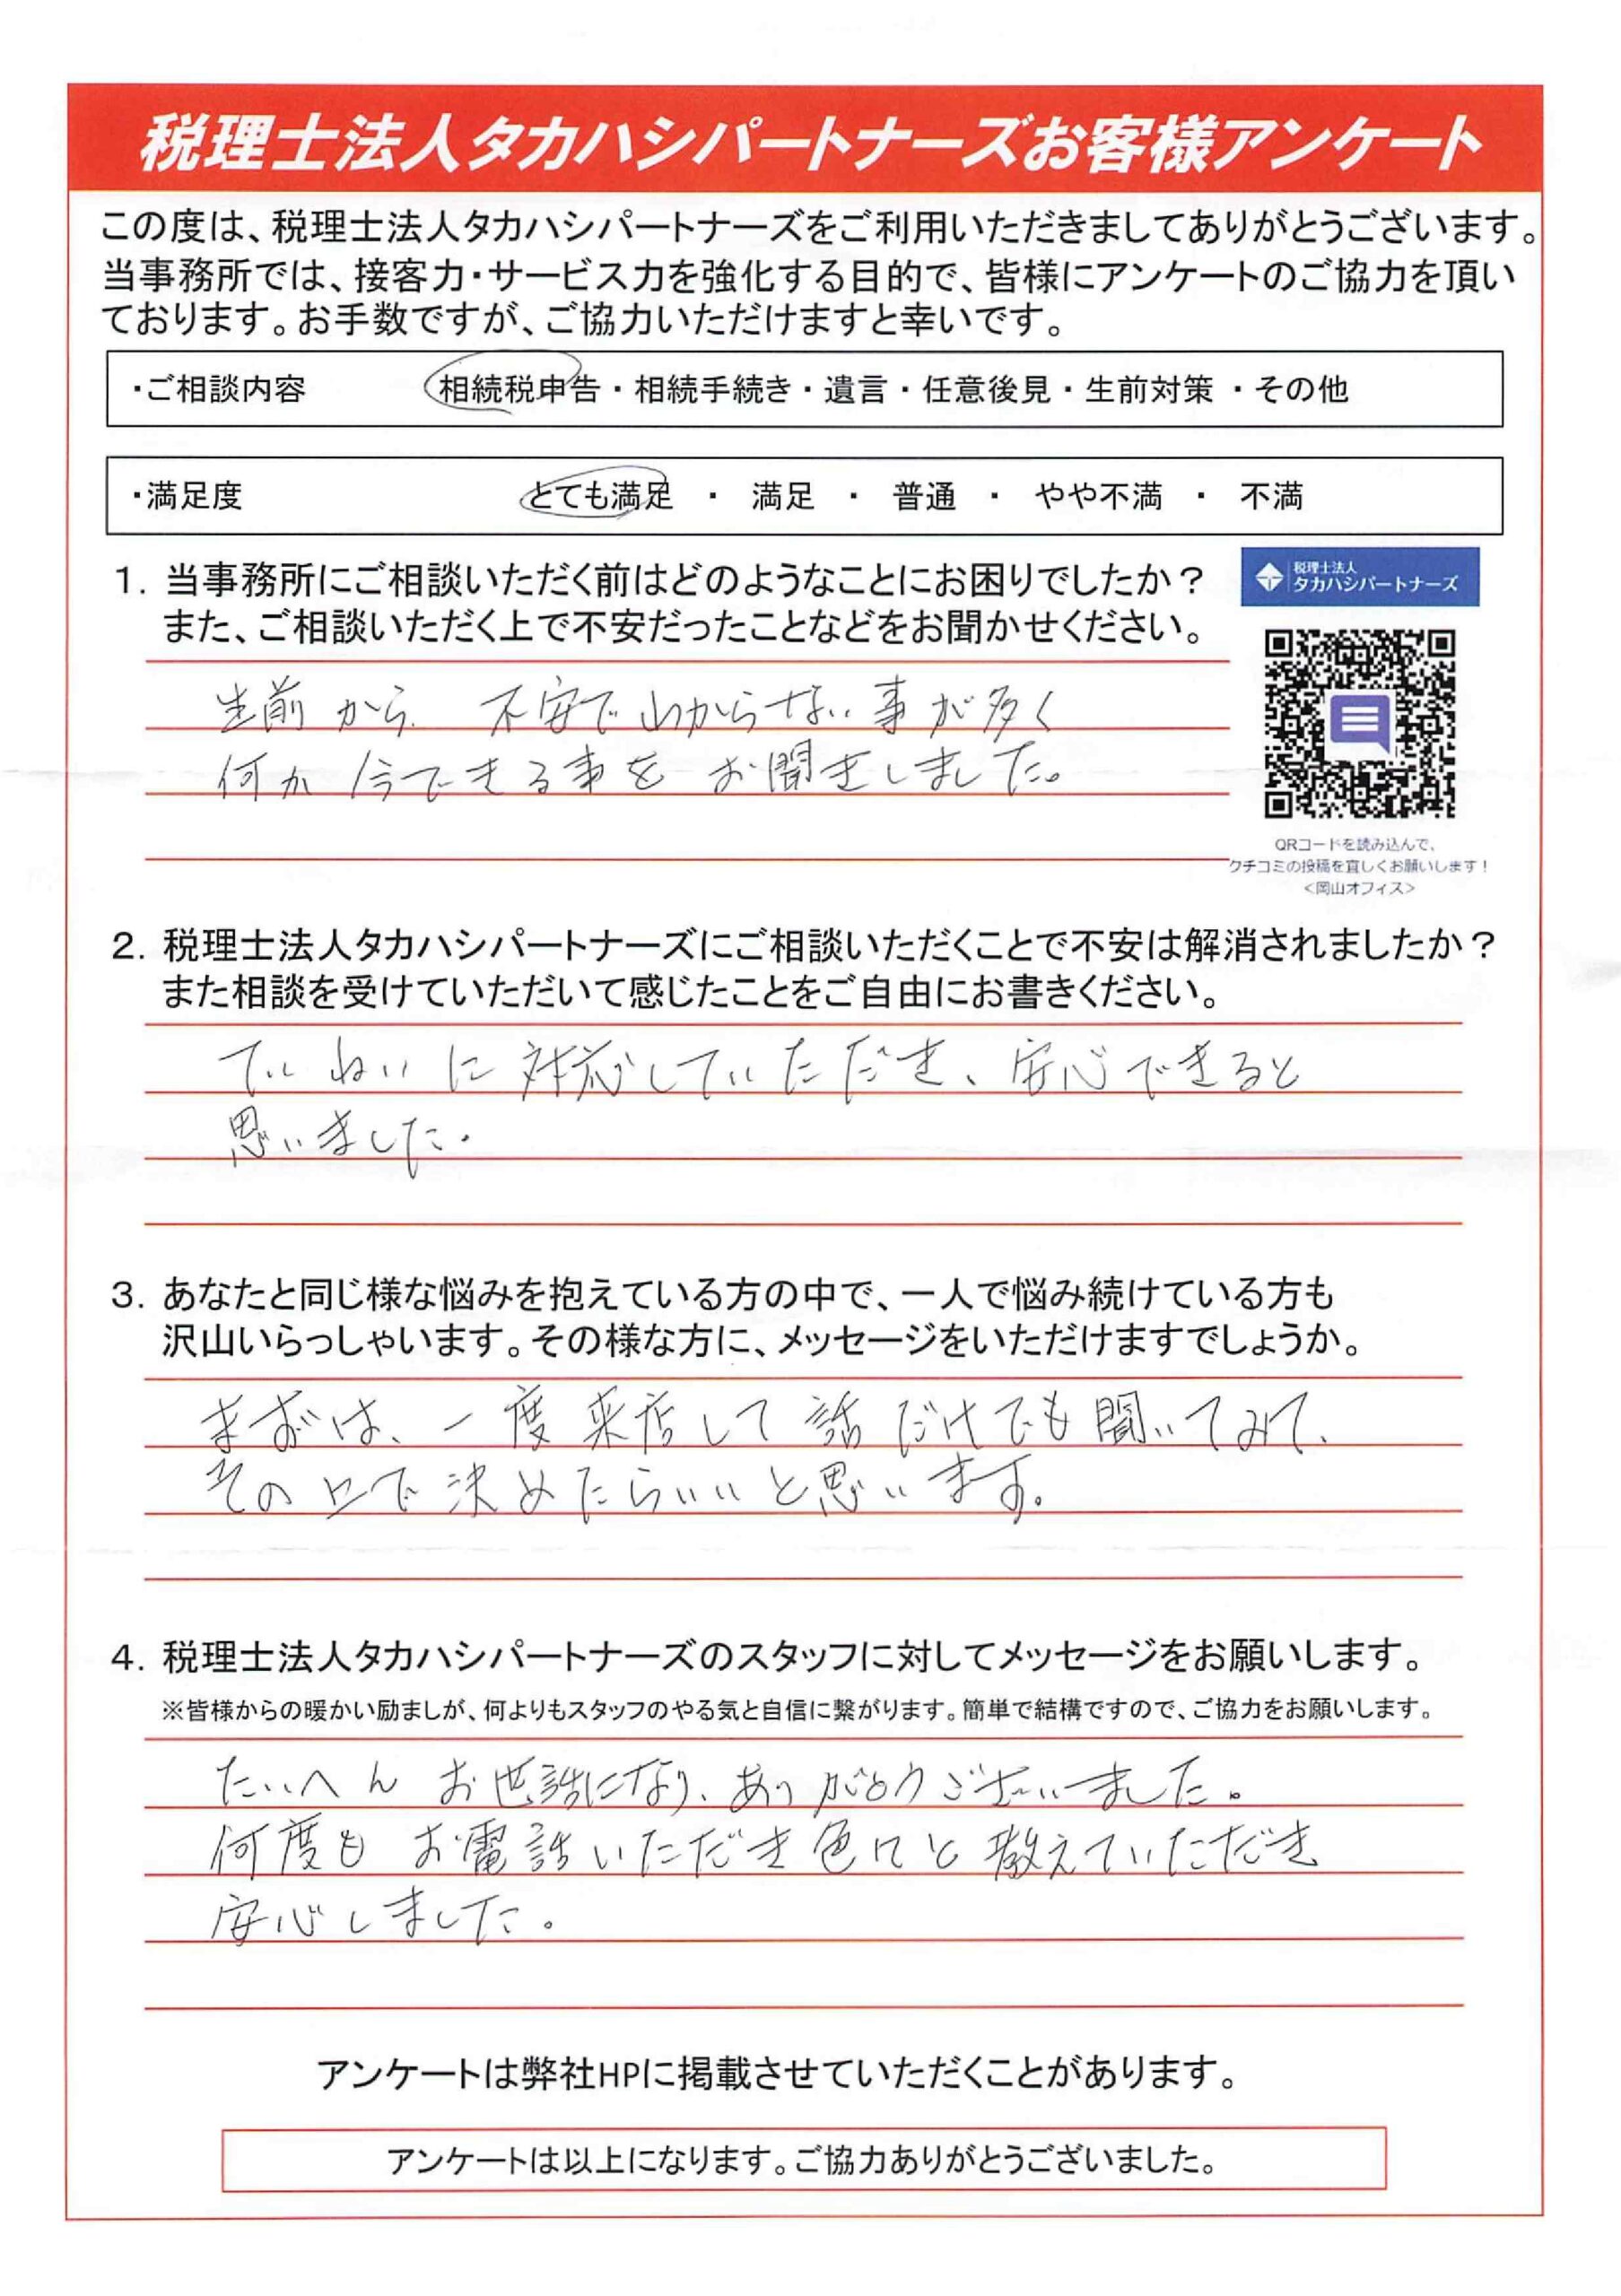 税理士法人タカハシパートナーズお客様アンケート
この度は、税理士法人タカハシパートナーズをご利用いただきましてありがとうございます。
当事務所では、接客力・サービス力を強化する目的で、皆様にアンケートのご協力を頂い
ております。お手数ですが、ご協力いただけますと幸いです。
・ご相談内容 相続税申告・相続手続き・遺言・任意後見・生前対策・その他
・満足度 とても満足 ・ 満足 ・ 普通 ・ やや不満 ・ 不満
1. 当事務所にご相談いただく前はどのようなことにお困りでしたか？
また、ご相談いただく上で不安だったことなどをお聞かせください。
税理士法人
タカハシパートナーズ
生前から 不安でわからない事が多く
何か今できる事を お聞きしました。
QRコードを読み込んで、
クチコミの投稿を宜しくお願いします！
＜岡山オフィス＞
2. 税理士法人タカハシパートナーズにご相談いただくことで不安は解消されましたか？
また相談を受けていただいて感じたことをご自由にお書きください。
ていねいに対応していただき、安心できると
思いました。
3. あなたと同じ様な悩みを抱えている方の中で、一人で悩み続けている方も
沢山いらっしゃいます。その様な方に、メッセージをいただけますでしょうか。
まずは、一度来店して話だけでも聞いてみて、
その上で決めたらいいと思います。
4. 税理士法人タカハシパートナーズのスタッフに対してメッセージをお願いします。
※皆様からの暖かい励ましが、何よりもスタッフのやる気と自信に繋がります。簡単で結構ですので、ご協力をお願いします。
たいへん お世話になり、ありがとうございました。
何度も お電話いただき色々と教えていただき
安心しました。
アンケートは弊社HPに掲載させていただくことがあります。
アンケートは以上になります。ご協力ありがとうございました。